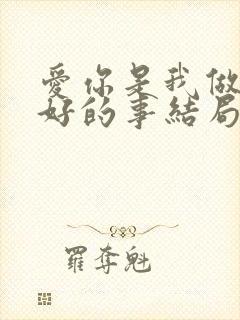 愛你是我做
好的事結局
羅奪魁